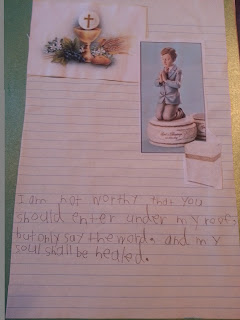 I am not worthy that you
should enter under my roof,
but only say the word. and my
soul shall be healed.